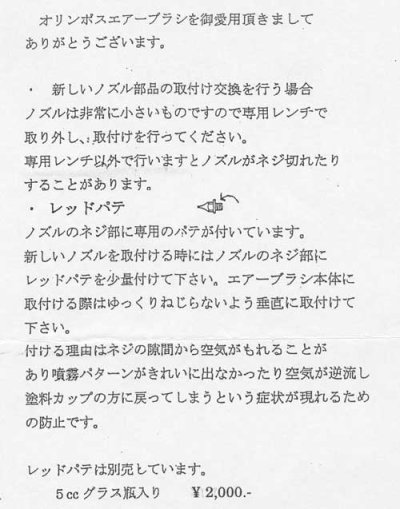 オリンポスエアーブラシを御愛用頂きまして
ありがとうございます。
・ 新しいノズル部品の取付け交換を行う場合
ノズルは非常に小さいものですので専用レンチで
取り外し、:取付けを行ってください。
専用レンチ以外で行いますとノズルがネジ切れたり
することがあります。
・ レッドパテ
ノズルのネジ部に専用のパテが付いています。
新しいノズルを取付ける時にはノズルのネジ部に
レッドパテを少量付けて下さい。エアーブラシ本体に
取付ける際はゆっくりねじらないよう垂直に取付けて
下さい。
付ける理由はネジの隙間から空気がもれることが
あり噴霧パターンがきれいに出なかったり空気が逆流し
塗料カップの方に戻ってしまうという症状が現れるため
の防止です。
レッドパテは別売しています。
５cc グラス瓶入り ¥ 2,000.-